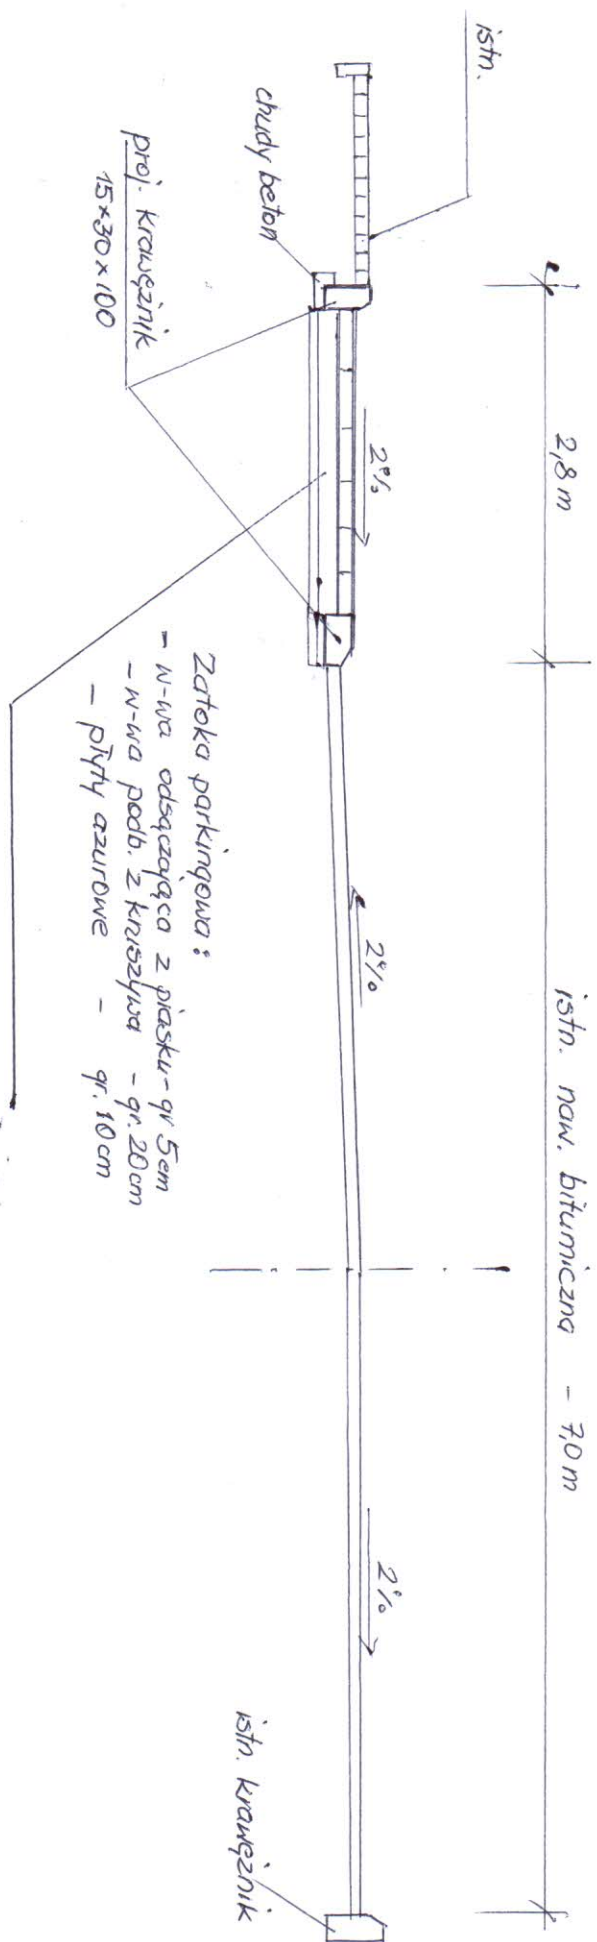 istn.
2,8 m
istn. naw. bitumiczna - 7,0 m
2%
2%
2%
chudy beton
proj. krawężnik
15x30x100
istn. krawężnik
Zatoka parkingowa:
- w-wa odsączająca z piasku - gr 5cm
- w-wa podb. z kruszywa - gr. 20cm
- płyty azurowe - gr. 10cm